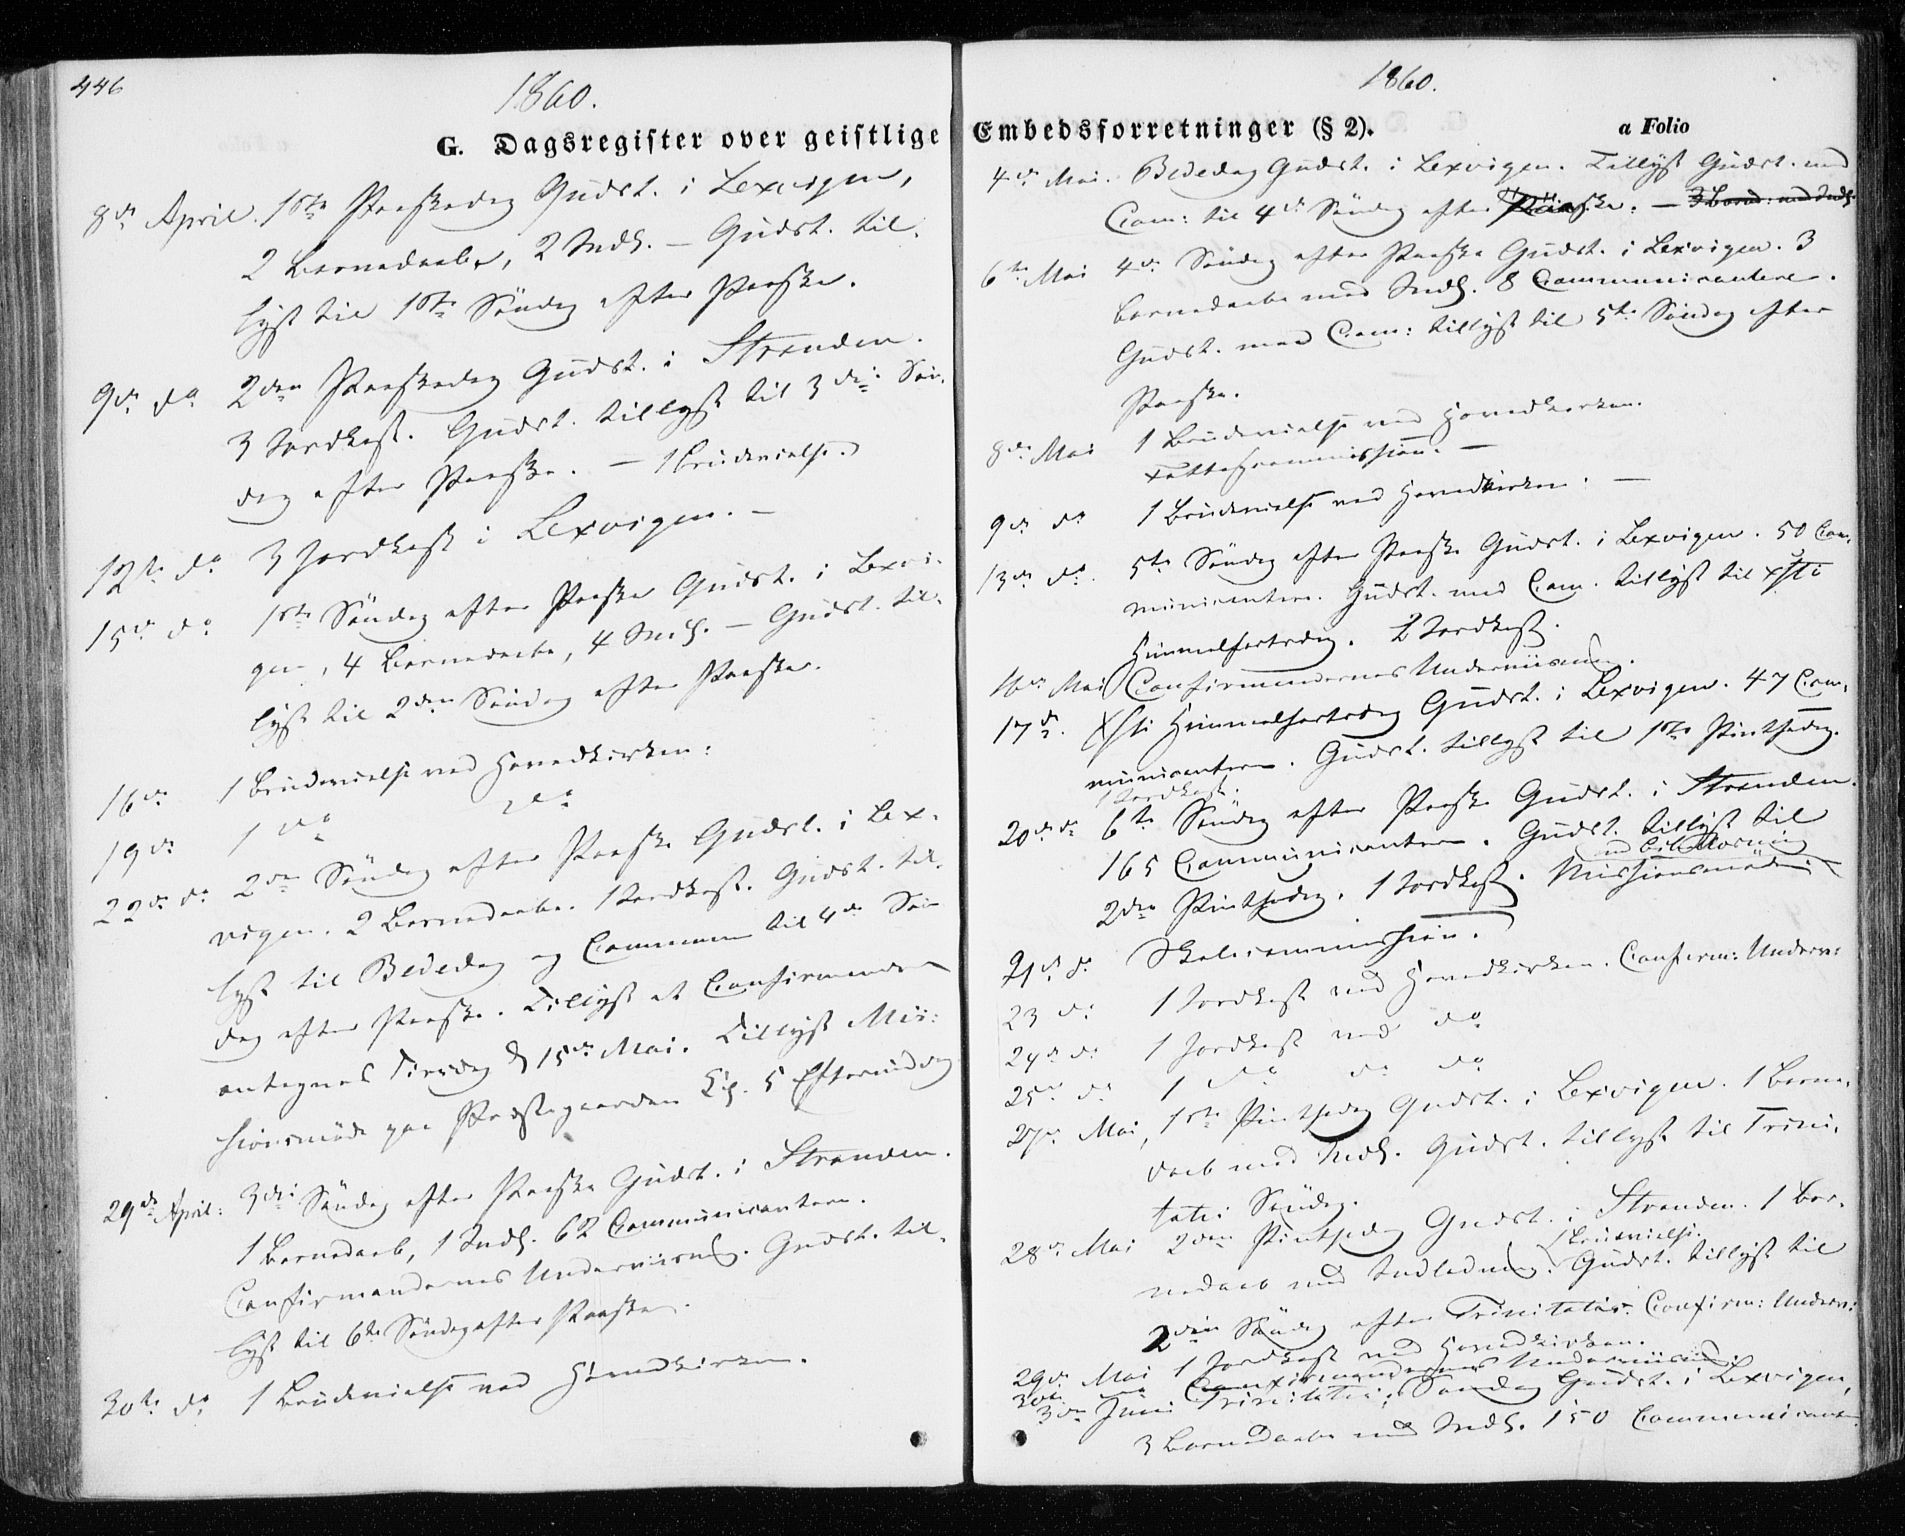 446
1860.
G. Dagsregister over geistlige
8de April. 1ste Paaskedag Gudst. i Lexvigen,
2 Barnedaabe, 2 Indl. – Gudst. til-
lyst til 1ste Søndag efter Paaske.
9de do 2den Paaskedag Gudst. i Stranden.
3 Jordkast. Gudst. tillyst til 3die Søn-
dag efter Paaske. – 1 Brudevielse.
12te do 3 Jordkast i Lexvigen. –
15de do 1ste Søndag efter Paaske Gudst. i Lexvi-
gen, 4 Barnedaabe, 4 Indl. – Gudst. til-
lyst til 2den Søndag efter Paaske.
16de 1 Brudevielse ved Hovedkirken.
19de 1 do do
22de do 2den Søndag efter Paaske Gudst. i Lex-
vigen. 2 Barnedaabe. 1 Jordkast. Gudst. til-
lyst til Bededag og Commun til 4de Søn-
dag efter Paaske. Tillyst at Confirmander
antegnes Tirsdag d. 15de Mai. Tillyst Mis-
sionsmøde paa Præstegaarden Kl. 5 Eftermiddag
29de April: 3die Søndag efter Paaske Gudst. i Stranden.
1 Barnedaab, 1 Indl. 62 Communicantere.
Confirmandernes Underviisning. Gudst. til-
lyst til 6te Søndag efter Paaske.
30te do 1 Brudevielse ved Hovedkirken.
1860.
Embedsforretninger (§ 2).
a Folio
4de Mai. Bededag Gudst. i Lexvigen. Tillyst Gudst. med
Com: til 4de Søndag efter Paaske. – 3 Barned: med Indl.
6te Mai 4de Søndag efter Paaske Gudst. i Lexvigen. 3
Barnedaabe med Indl. 8 Communicantere.
Gudst. med Com: tillyst til 5te Søndag efter
Paaske.
8de Mai 1 Brudevielse ved Hovedkirken.
Fattigcommission. –
9de do 1 Brudevielse ved Hovedkirken. –
13de do. 5te Søndag efter Paaske Gudst. i Lexvigen. 50 Com-
municantere. Gudst. med Com. tillyst til Xsti
Himmelfartsdag. 2 Jordkast.
16de Mai Confirmandernes Underviisning.
17de. Xsti Himmelfartsdag Gudst. i Lexvigen. 47 Com-
municantere. Gudst. tillyst til 1ste Pintsedag.
1 Jordkast.
20de do 6te Søndag efter Paaske Gudst. i Stranden.
165 Communicantere. Gudst. tillyst til
2den Pintsedag. 1 Jordkast. Missionsmøde
21de do Skolecommission.
23 do 1 Jordkast ved Hovedkirken. Confirm: Underv:
24de do 1 Jordkast ved do
25de do 1 do do do
27de Mai, 1ste Pintsedag Gudst. i Lexvigen. 1 Barne-
daab med Indl. Gudst. tillyst til Trini-
tatis Søndag.
28de Mai 2den Pintsedag Gudst. i Stranden. 1 Bar-
nedaab med Indledning. 1 Brudevielse. Gudst. tillyst til
2den Søndag efter Trinitatis. Confirm: Underv:
29de Mai 1 Jordkast ved Hovedkirken.
30te Confirmandernes Underviisning.
3de Juni Trinitatis Søndag Gudst. i Lexvigen,
3 Barnedaabe med Indl. 150 Communicant